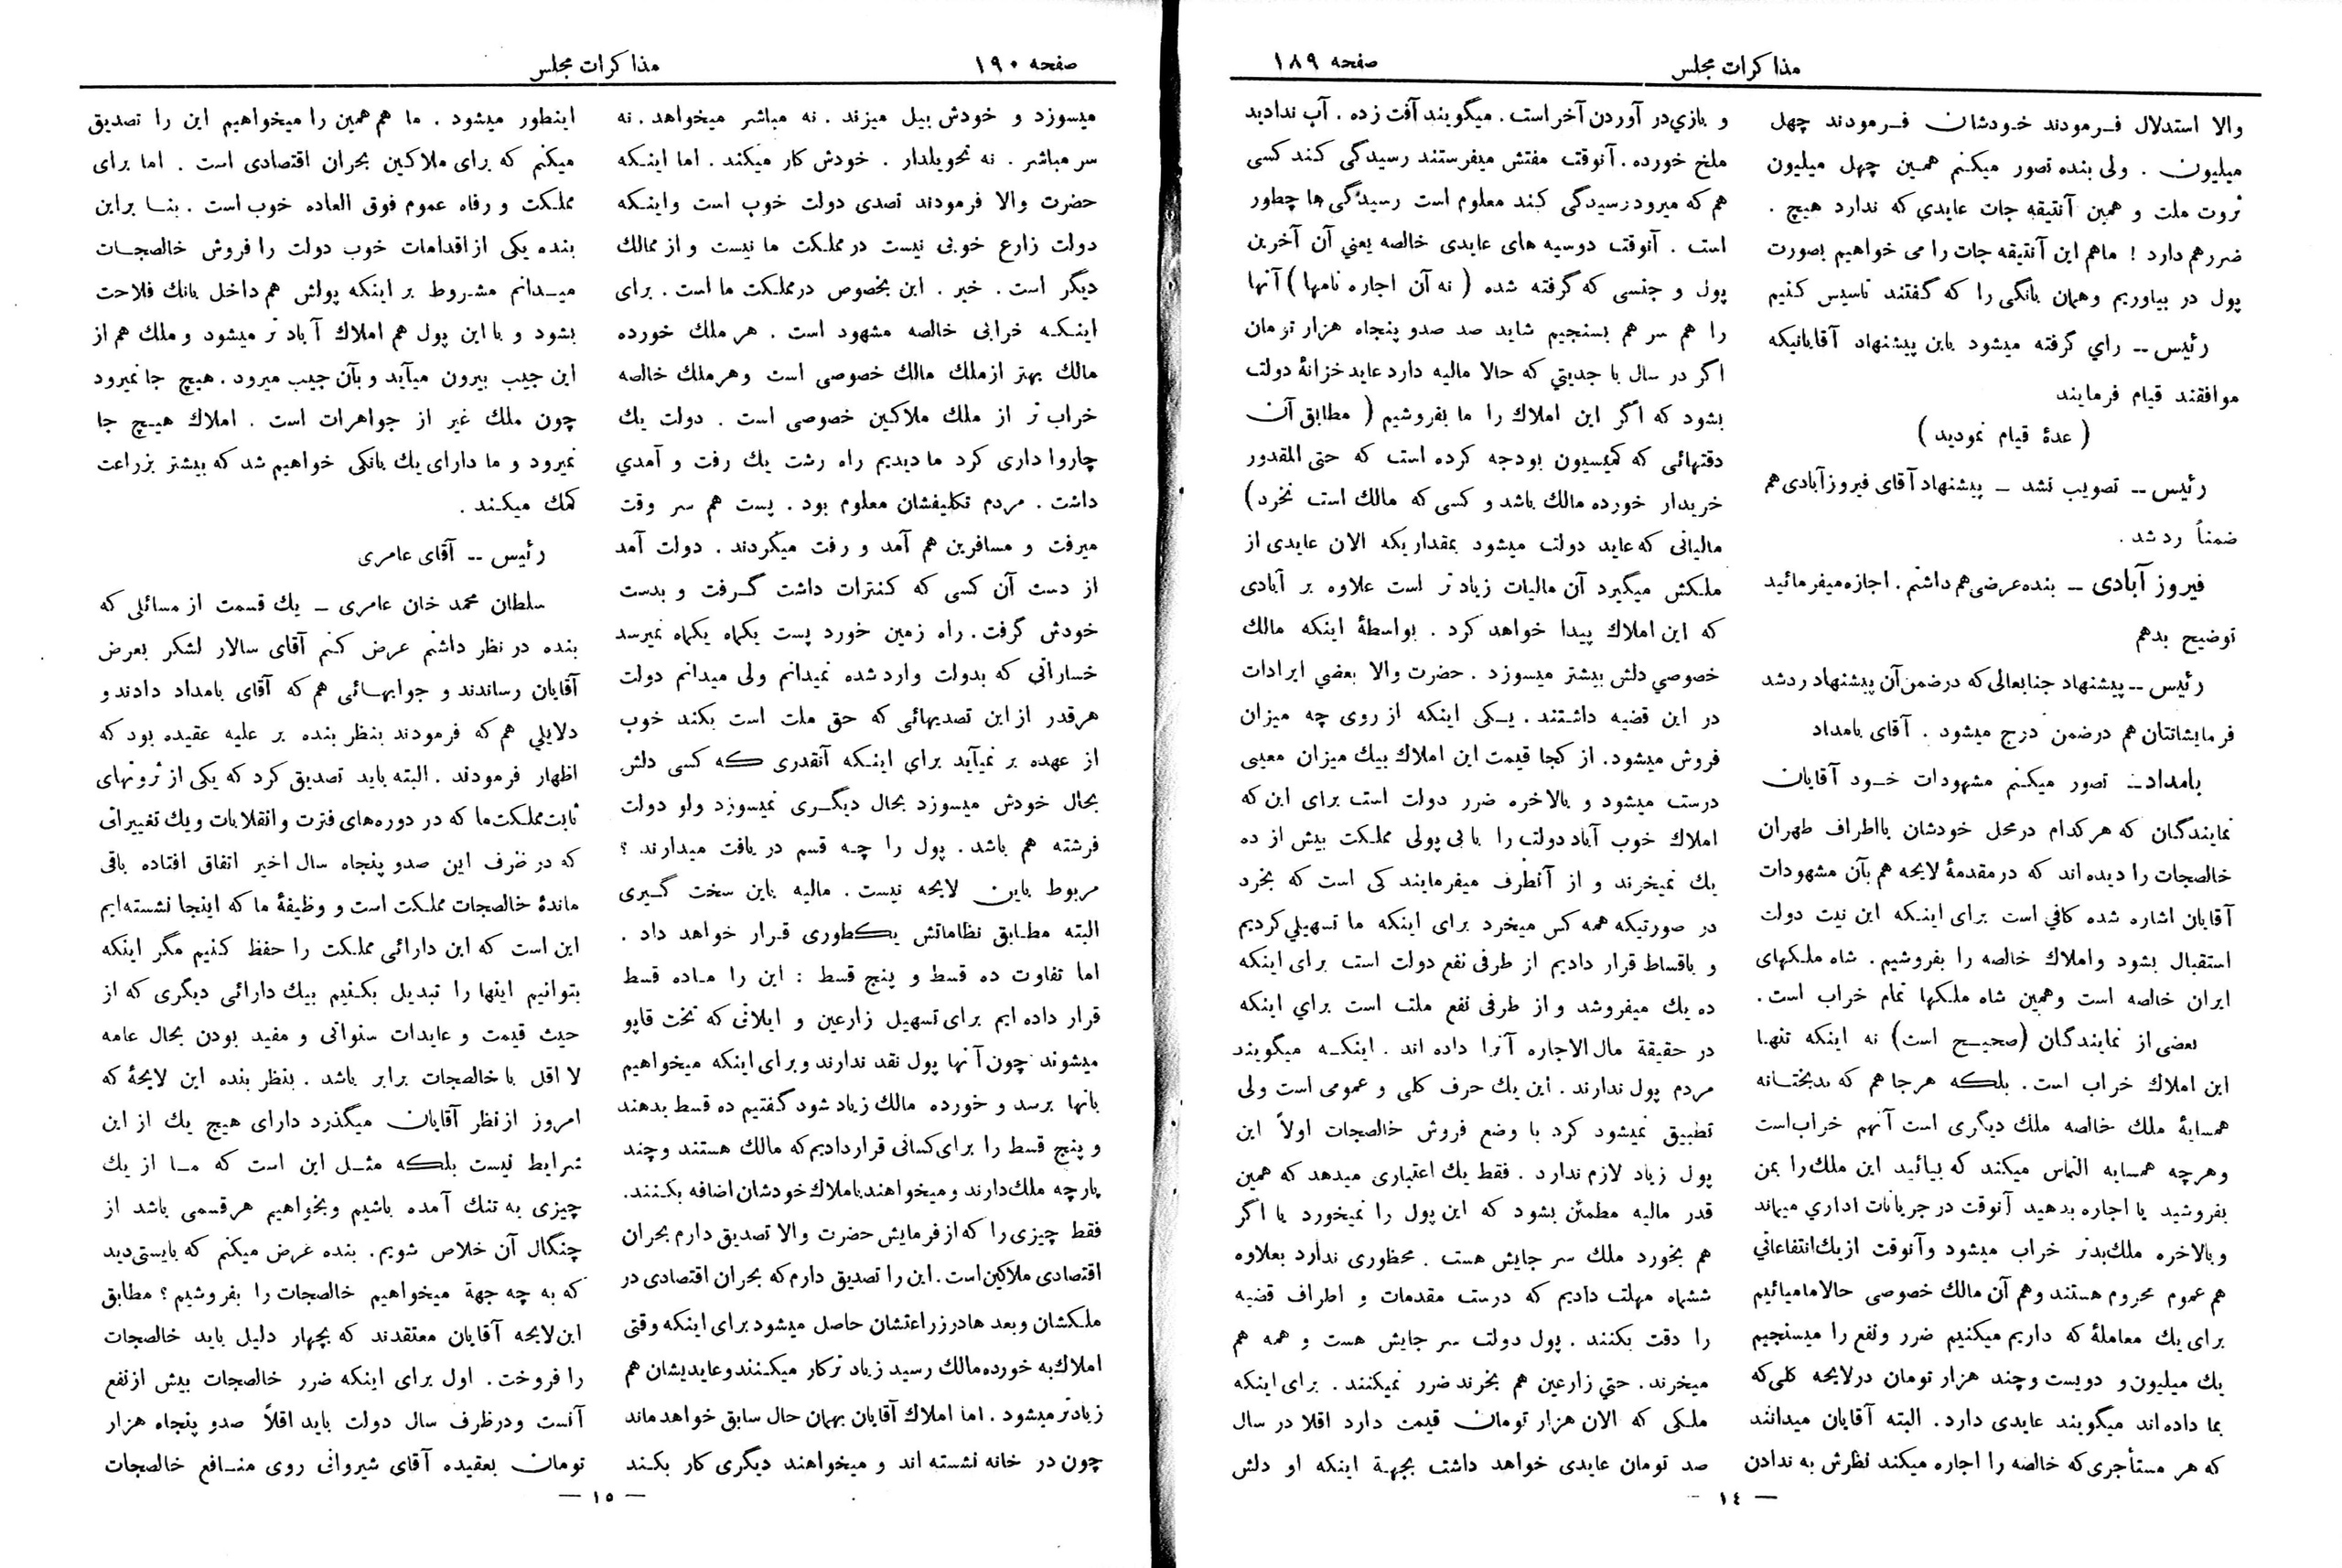 مذاکرات مجلس
صفحه ۱۸۹
والا استدلال فرمودند خودشان فرمودند چهل
میلیون . ولی بنده تصور میکنم همین چهل میلیون
ثروت ملت و همین آنتیقه جات عایدی که ندارد هیچ .
ضررهم دارد ! ماهم این آنتیقه جات را می خواهیم بصورت
پول در بیاوریم وهمان بانگی را که گفتند تاسیس کنیم
رئیس -- رأي گرفته میشود باین پیشنهاد آقایانیکه
موافقند قیام فرمایند
( عدهٔ قیام نمودید )
رئیس -- تصویب نشد - پیشنهاد آقای فیروزآبادی هم
ضمناً رد شد .
فیروز آبادی -- بنده عرضی هم داشتم . اجازه میفرمائید
توضیح بدهم
رئیس -- پیشنهاد جنابعالی که درضمن آن پیشنهاد ردشد
فرمایشاتتان هم درضمن درج میشود . آقای بامداد
بامداد -- تصور میکنم مشهودات خود آقایان
نمایندگان که هرکدام درمحل خودشان یااطراف طهران
خالصجات را دیده اند که در مقدمهٔ لایحه هم بآن مشهودات
آقایان اشاره شده کافي است برای اینکه این نیت دولت
استقبال بشود واملاك خالصه را بفروشیم . شاه ملکهای
ایران خالصه است وهمین شاه ملکها تمام خراب است .
بعضی از نمایندگان (صحیح است) نه اینکه تنها
این املاك خراب است . بلکه هرجا هم که بدبختانه
همسایهٔ ملك خالصه ملك دیگری است آنهم خراب است
وهرچه همسایه التماس میکند که بیائید این ملك را بمن
بفروشید یا اجاره بدهید آنوقت در جریانات اداري میماند
وبالاخره ملك بدتر خراب میشود وآنوقت ازیك انتفاعاتي
هم عموم محروم هستند وهم آن مالك خصوصی حالا مامیائیم
برای یك معاملهٔ که داریم میکنیم ضرر ونفع را میسنجیم
یك میلیون و دویست وچند هزار تومان درلایحه کلی که
بما داده اند میگویند عایدی دارد . البته آقایان میدانند
که هر مستأجری که خالصه را اجاره میکند نظرش به ندادن
و بازي در آوردن آخراست . میگویند آفت زده . آب ندادید
ملخ خورده . آنوقت مفتش میفرستند رسیدگی کند کسی
هم که میرود رسیدگی کند معلوم است رسیدگی ها چطور
است . آنوقت دوسیه های عایدی خالصه یعني آن آخرین
پول و جنسی که گرفته شده ( نه آن اجاره نامها ) آنها
را هم سر هم بسنجیم شاید صد صدو پنجاه هزار تومان
اگر در سال با جدیتي که حالا مالیه دارد عاید خزانهٔ دولت
بشود که اگر این املاك را ما بفروشیم ( مطابق آن
دقتهائی که کمیسیون بودجه کرده است که حتی المقدور
خریدار خورده مالك باشد و کسی که مالك است نخرد)
مالیاتی که عاید دولت میشود بمقداریکه الان عایدی از
ملکش میگیرد آن مالیات زیادتر است علاوه بر آبادی
که این املاك پیدا خواهد کرد . بواسطهٔ اینکه مالك
خصوصي دلش بیشتر میسوزد . حضرت والا بعضي ایرادات
در این قضیه داشتند . یکی اینکه از روی چه میزان
فروش میشود . از کجا قیمت این املاك بیك میزان معینی
درست میشود و بالاخره ضرر دولت است برای این که
املاك خوب آباد دولت را با بی پولی مملکت بیش از ده
یك نمیخرند و از آنطرف میفرمایند کی است که بخرد
در صورتیکه همه کس میخرد برای اینکه ما تسهیلي کردیم
و باقساط قرار دادیم از طرفی نفع دولت است برای اینکه
ده یك میفروشد و از طرفی نفع ملت است براي اینکه
در حقیقة مال الاجاره آنرا داده اند . اینکه میگویند
مردم پول ندارند . این یك حرف کلی و عمومی است ولی
تطبیق نمیشود کرد با وضع فروش خالصجات اولاً این
پول زیاد لازم ندارد . فقط یك اعتباری میدهد که همین
قدر مالیه مطمئن بشود که این پول را نمیخورد یا اگر
هم بخورد ملك سر جایش هست . محظوری ندارد بعلاوه
ششماه مهلت دادیم که درست مقدمات و اطراف قضیه
را دقت بکنند . پول دولت سر جایش هست و همه هم
میخرند . حتي زارعین هم بخرند ضرر نمیکنند . برای اینکه
ملکی که الان هزار تومان قیمت دارد اقلا در سال
صد تومان عایدی خواهد داشت بجهة اینکه او دلش
— ۱٤ -
صفحه ۱۹۰
مذاکرات مجلس
میسوزد و خودش بیل میزند . نه مباشر میخواهد . نه
سر مباشر . نه تحویلدار . خودش کار میکند . اما اینکه
حضرت والا فرمودند تصدی دولت خوب است واینکه
دولت زارع خوبی نیست در مملکت ما نیست و از ممالك
دیگر است . خیر . این بخصوص درمملکت ما است . برای
اینکه خرابی خالصه مشهود است . هر ملك خورده
مالك بهتر از ملك مالك خصوصی است وهرملك خالصه
خراب تر از ملك ملاکین خصوصی است . دولت یك
چاروا داری کرد ما دیدیم راه رشت یك رفت و آمدي
داشت . مردم تکلیفشان معلوم بود . پست هم سر وقت
میرفت و مسافرین هم آمد و رفت میکردند . دولت آمد
از دست آن کسی که کنترات داشت گرفت و بدست
خودش گرفت . راه زمین خورد پست یکماه یکماه نمیرسد
خساراتی که بدولت وارد شده نمیدانم ولی میدانم دولت
هرقدر از این تصدیهائی که حق ملت است بکند خوب
از عهده بر نمیآید براي اینکه آنقدری که کسی دلش
بحال خودش میسوزد بحال دیگری نمیسوزد ولو دولت
فرشته هم باشد . پول را چه قسم دریافت میدارند ؟
مربوط باین لایحه نیست . مالیه باین سخت گیری
البته مطابق نظاماتش یکطوری قرار خواهد داد .
اما تفاوت ده قسط و پنج قسط : این را ماده قسط
قرار داده ایم برای تسهیل زارعین و ایلاتی که تخت قاپو
میشوند چون آنها پول نقد ندارند وبرای اینکه میخواهیم
بآنها برسد و خورده مالك زیاد شود گفتیم ده قسط بدهند
و پنج قسط را برای کسانی قراردادیم که مالك هستند وچند
پارچه ملك دارند ومیخواهند باملاك خودشان اضافه بکنند .
فقط چیزی را که از فرمایش حضرت والا تصدیق دارم بحران
اقتصادی ملاکین است . این را تصدیق دارم که بحران اقتصادی در
ملکشان وبعد هادرزراعتشان حاصل میشود برای اینکه وقتی
املاك به خورده مالك رسید زیاد ترکار میکنند وعایدیشان هم
زیادترمیشود . اما املاك آقایان بهمان حال سابق خواهد ماند
چون در خانه نشسته اند و میخواهند دیگری کار بکند
اینطور میشود . ما هم همین را میخواهیم این را تصدیق
میکنم که برای ملاکین بحران اقتصادی است . اما برای
مملکت و رفاه عموم فوق العاده خوب است . بنا براین
بنده یکی ازاقدامات خوب دولت را فروش خالصجات
میدانم مشروط بر اینکه پولش هم داخل بانك فلاحت
بشود و با این پول هم املاك آباد تر میشود و ملك هم از
این جیب بیرون میآید و بآن جیب میرود . هیچ جا نمیرود
چون ملك غیر از جواهرات است . املاك هیچ جا
نمیرود و ما دارای یك بانکی خواهیم شد که بیشتر بزراعت
کمك میکند .
رئیس -- آقای عامری
سلطان محمد خان عامری - یك قسمت از مسائلی که
بنده در نظر داشتم عرض کنم آقای سالار لشکر بعرض
آقایان رساندند و جوابهائی هم که آقای بامداد دادند و
دلایلي هم که فرمودند بنظر بنده بر علیه عقیده بود که
اظهار فرمودند . البته باید تصدیق کرد که یکی از ثروتهای
ثابت مملکت ما که در دوره های فترت وانقلابات ویك تغییراتی
که در ظرف این صدو پنجاه سال اخیر اتفاق افتاده باقی
ماندهٔ خالصجات مملکت است و وظیفهٔ ما که اینجا نشسته ایم
این است که این دارائی مملکت را حفظ کنیم مگر اینکه
بتوانیم اینها را تبدیل بکنیم بیك دارائی دیگری که از
حیث قیمت و عایدات سنواتی و مفید بودن بحال عامه
لا اقل با خالصجات برابر باشد . بنظر بنده این لایحهٔ که
امروز ازنظر آقایان میگذرد دارای هیچ یك از این
شرایط نیست بلکه مثل این است که ما از یك
چیزی به تنك آمده باشیم وبخواهیم هرقسمی باشد از
چنگال آن خلاص شویم . بنده عرض میکنم که بایستی دید
که به چه جهة میخواهیم خالصجات را بفروشیم ؟ مطابق
این لایحه آقایان معتقدند که بچهار دلیل باید خالصجات
را فروخت . اول برای اینکه ضرر خالصجات بیش ازنفع
آنست ودرظرف سال دولت باید اقلاً صدو پنجاه هزار
تومان بعقیده آقای شیروانی روی منافع خالصجات
— ۱٥ —